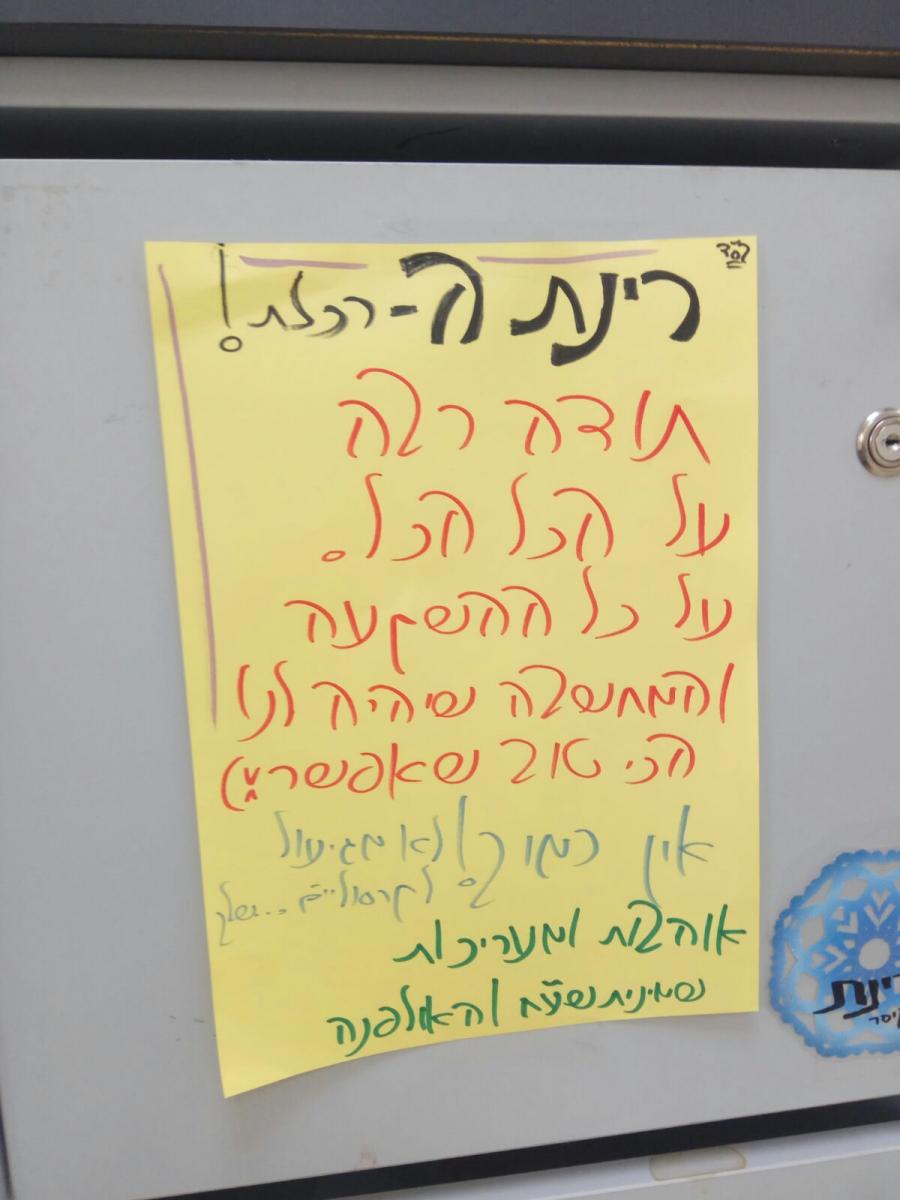 בס"ד
רינת ה-רכזת!
תודה רבה
על הכל הכל.
על כל ההשקעה
והמחשבה שיהיה לנו
הכי טוב שאפשר
אין כמוך! לא מגיעות
לקרסוליים.. שלך
אוהבות ומעריכות
שמינית תשע"ח והאולפנה
רינת